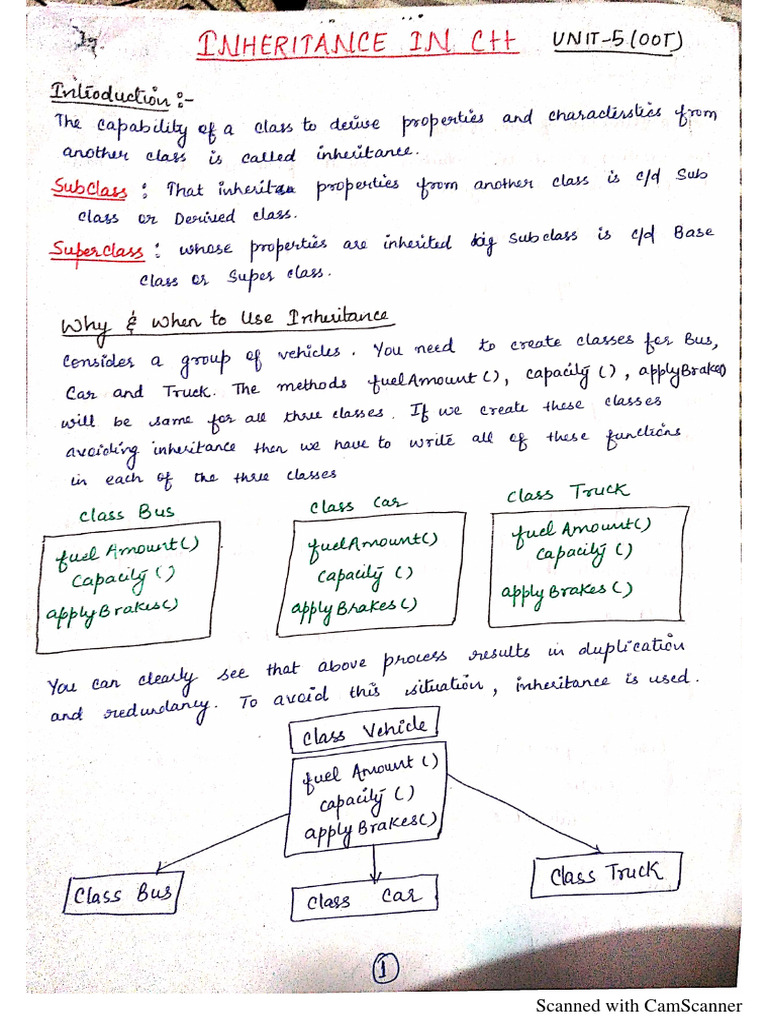 INHERITANCE IN C++ UNIT-5 (OOT)
Introduction :-
The capability of a class to derive properties and characterstics from
another class is called inheritance.
SubClass : That inherit properties from another class is c/d Sub
class or Derived class.
SuperClass : whose properties are inherited by Subclass is c/d Base
Class or Super class.
Why & When to Use Inheritance
Consider a group of vehicles. You need to create classes for Bus,
Car and Truck. The methods fuelAmount(), capacity(), applyBrakes()
will be same for all three classes. If we create these classes
avoiding inheritance then we have to write all of these functions
in each of the three classes
class Bus class Car class Truck
fuel Amount() fuelAmount() fuel Amount()
Capacity () capacity () capacity ()
apply Brakes() apply Brakes() apply Brakes()
You can clearly see that above process results in duplication
and redundancy. To avoid this situation, inheritance is used.
Class Vehicle
fuel Amount ()
capacity ()
apply Brakes()
Class Bus Class Car Class Truck
1
Scanned with CamScanner